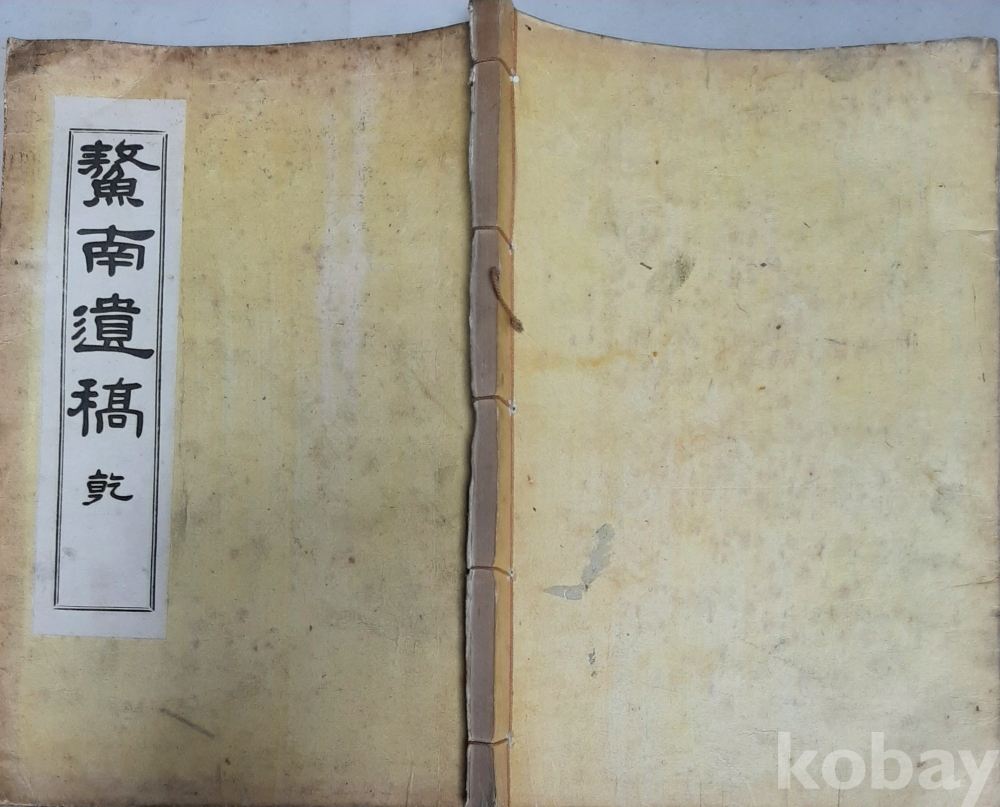 鰲南遺稿 乾
kobay